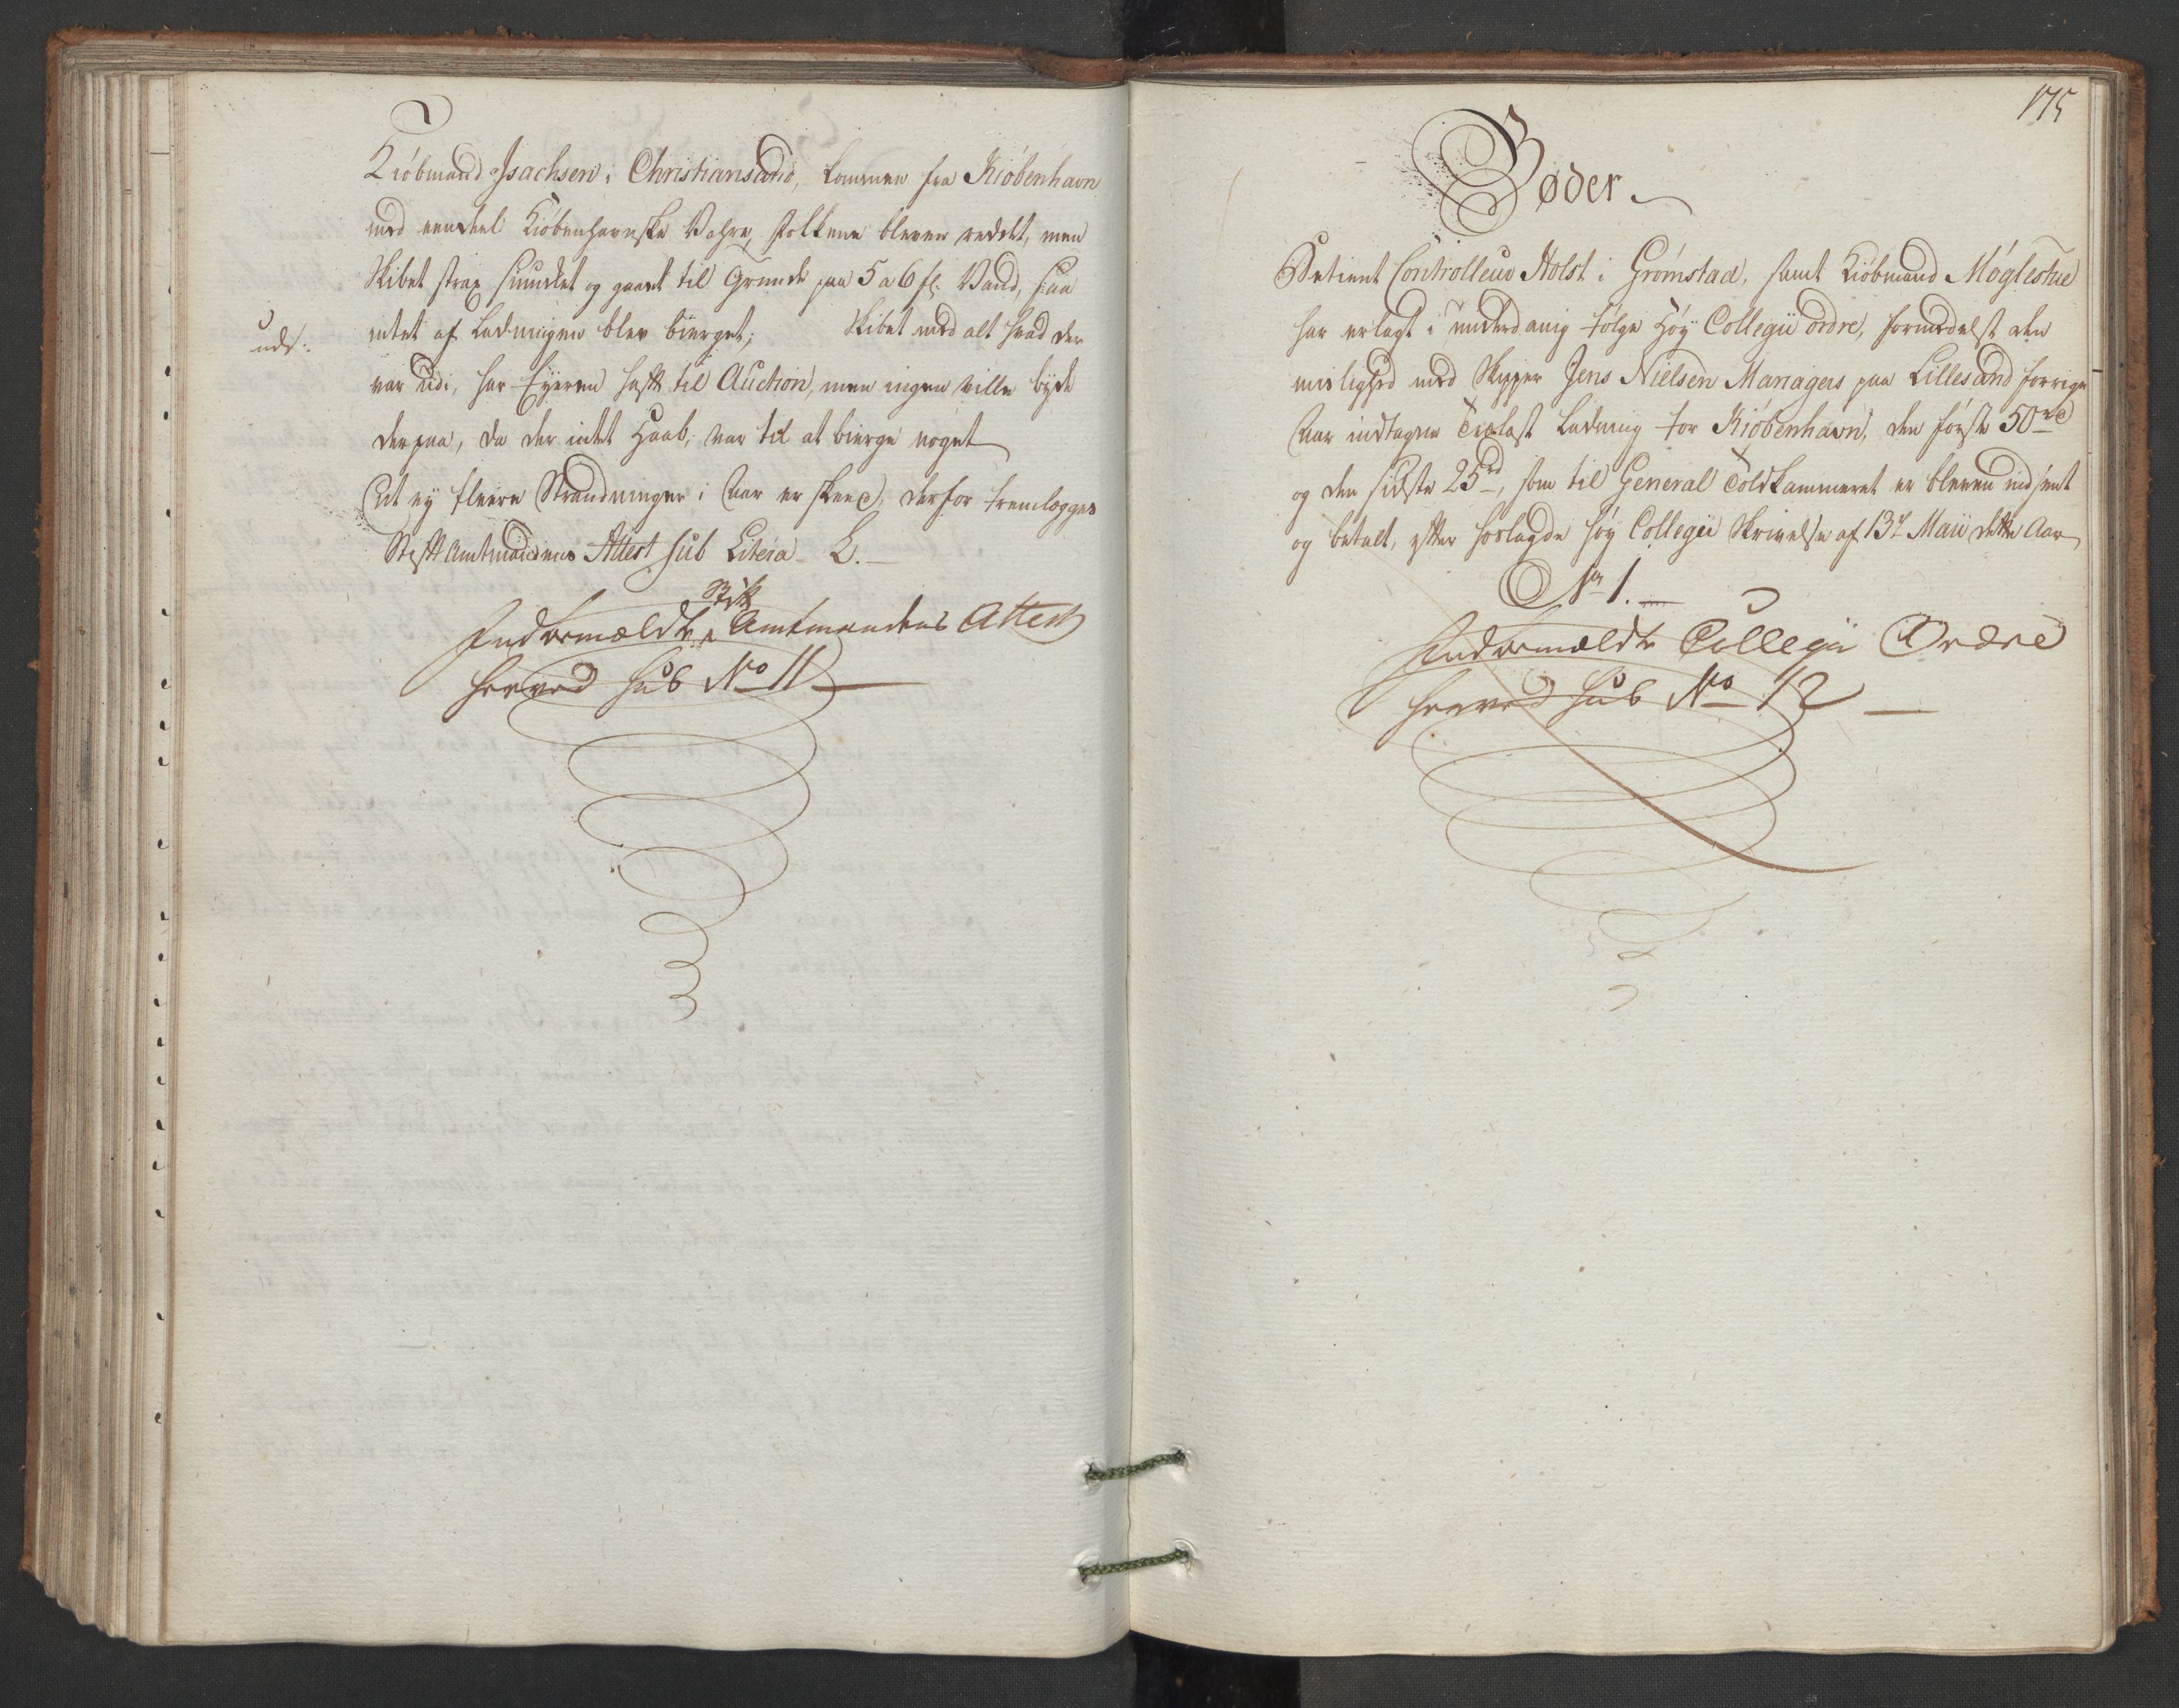 Kiöbmand Isachsen i Christiansand, kommen fra Kiöbenhavn
med eendeel Kiöbenhavnske Vahre, folkene bleven reddet, men
Skibet strax siuncket og gaaet til Grunde paa 5 a 6 fl. Vand, saa
intet af Ladningen blev bierget; Skibet med alt hvad der
var udi, har Eyeren hafft til Auction, men ingen ville byde
derpaa, da der intet Haab var til at bierge noget
At ey fleere Strandninger i Aar er skeed, derfor fremlegges
Stifft Amtmandens Attest sub Litera L.
Stift
Indbemældte Amtmandens Attest
herved sub No 11
175
Bøder
Betient Controlleur Holst i Grömstad, samt Kiöbmand Möglestue
har erlagt i underdanig fölge Höy Collegii ordre, formedelst den
mislighed med Skipper Jens Nielsen Managers paa Lillesand forrige
Aar indtagne Trælast Ladning for Kiöbenhavn, den förste 50 rd
og den sidste 25 rd, som til General Toldkammeret er bleven indsent
og betalt, efter hoslagde höy Collegii Skrivelse af 13de Maii dette Aar
No 1.
Indbemældte Collegii Ordre
herved sub No 12